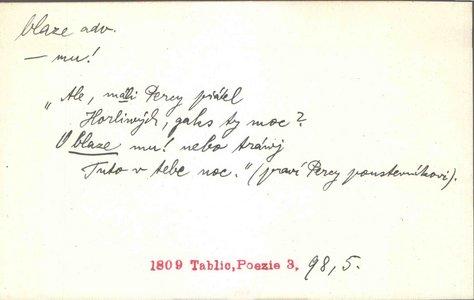 blaze adv.
— mu!
„Ale, málli Percy přátel
Horliwých, gaks ty moc?
O blaze mu! nebo tráwj
Tuto v tebe noc." (praví Percy poustevníkovi).
1809 Tablic,Poezie 3, 98,5.